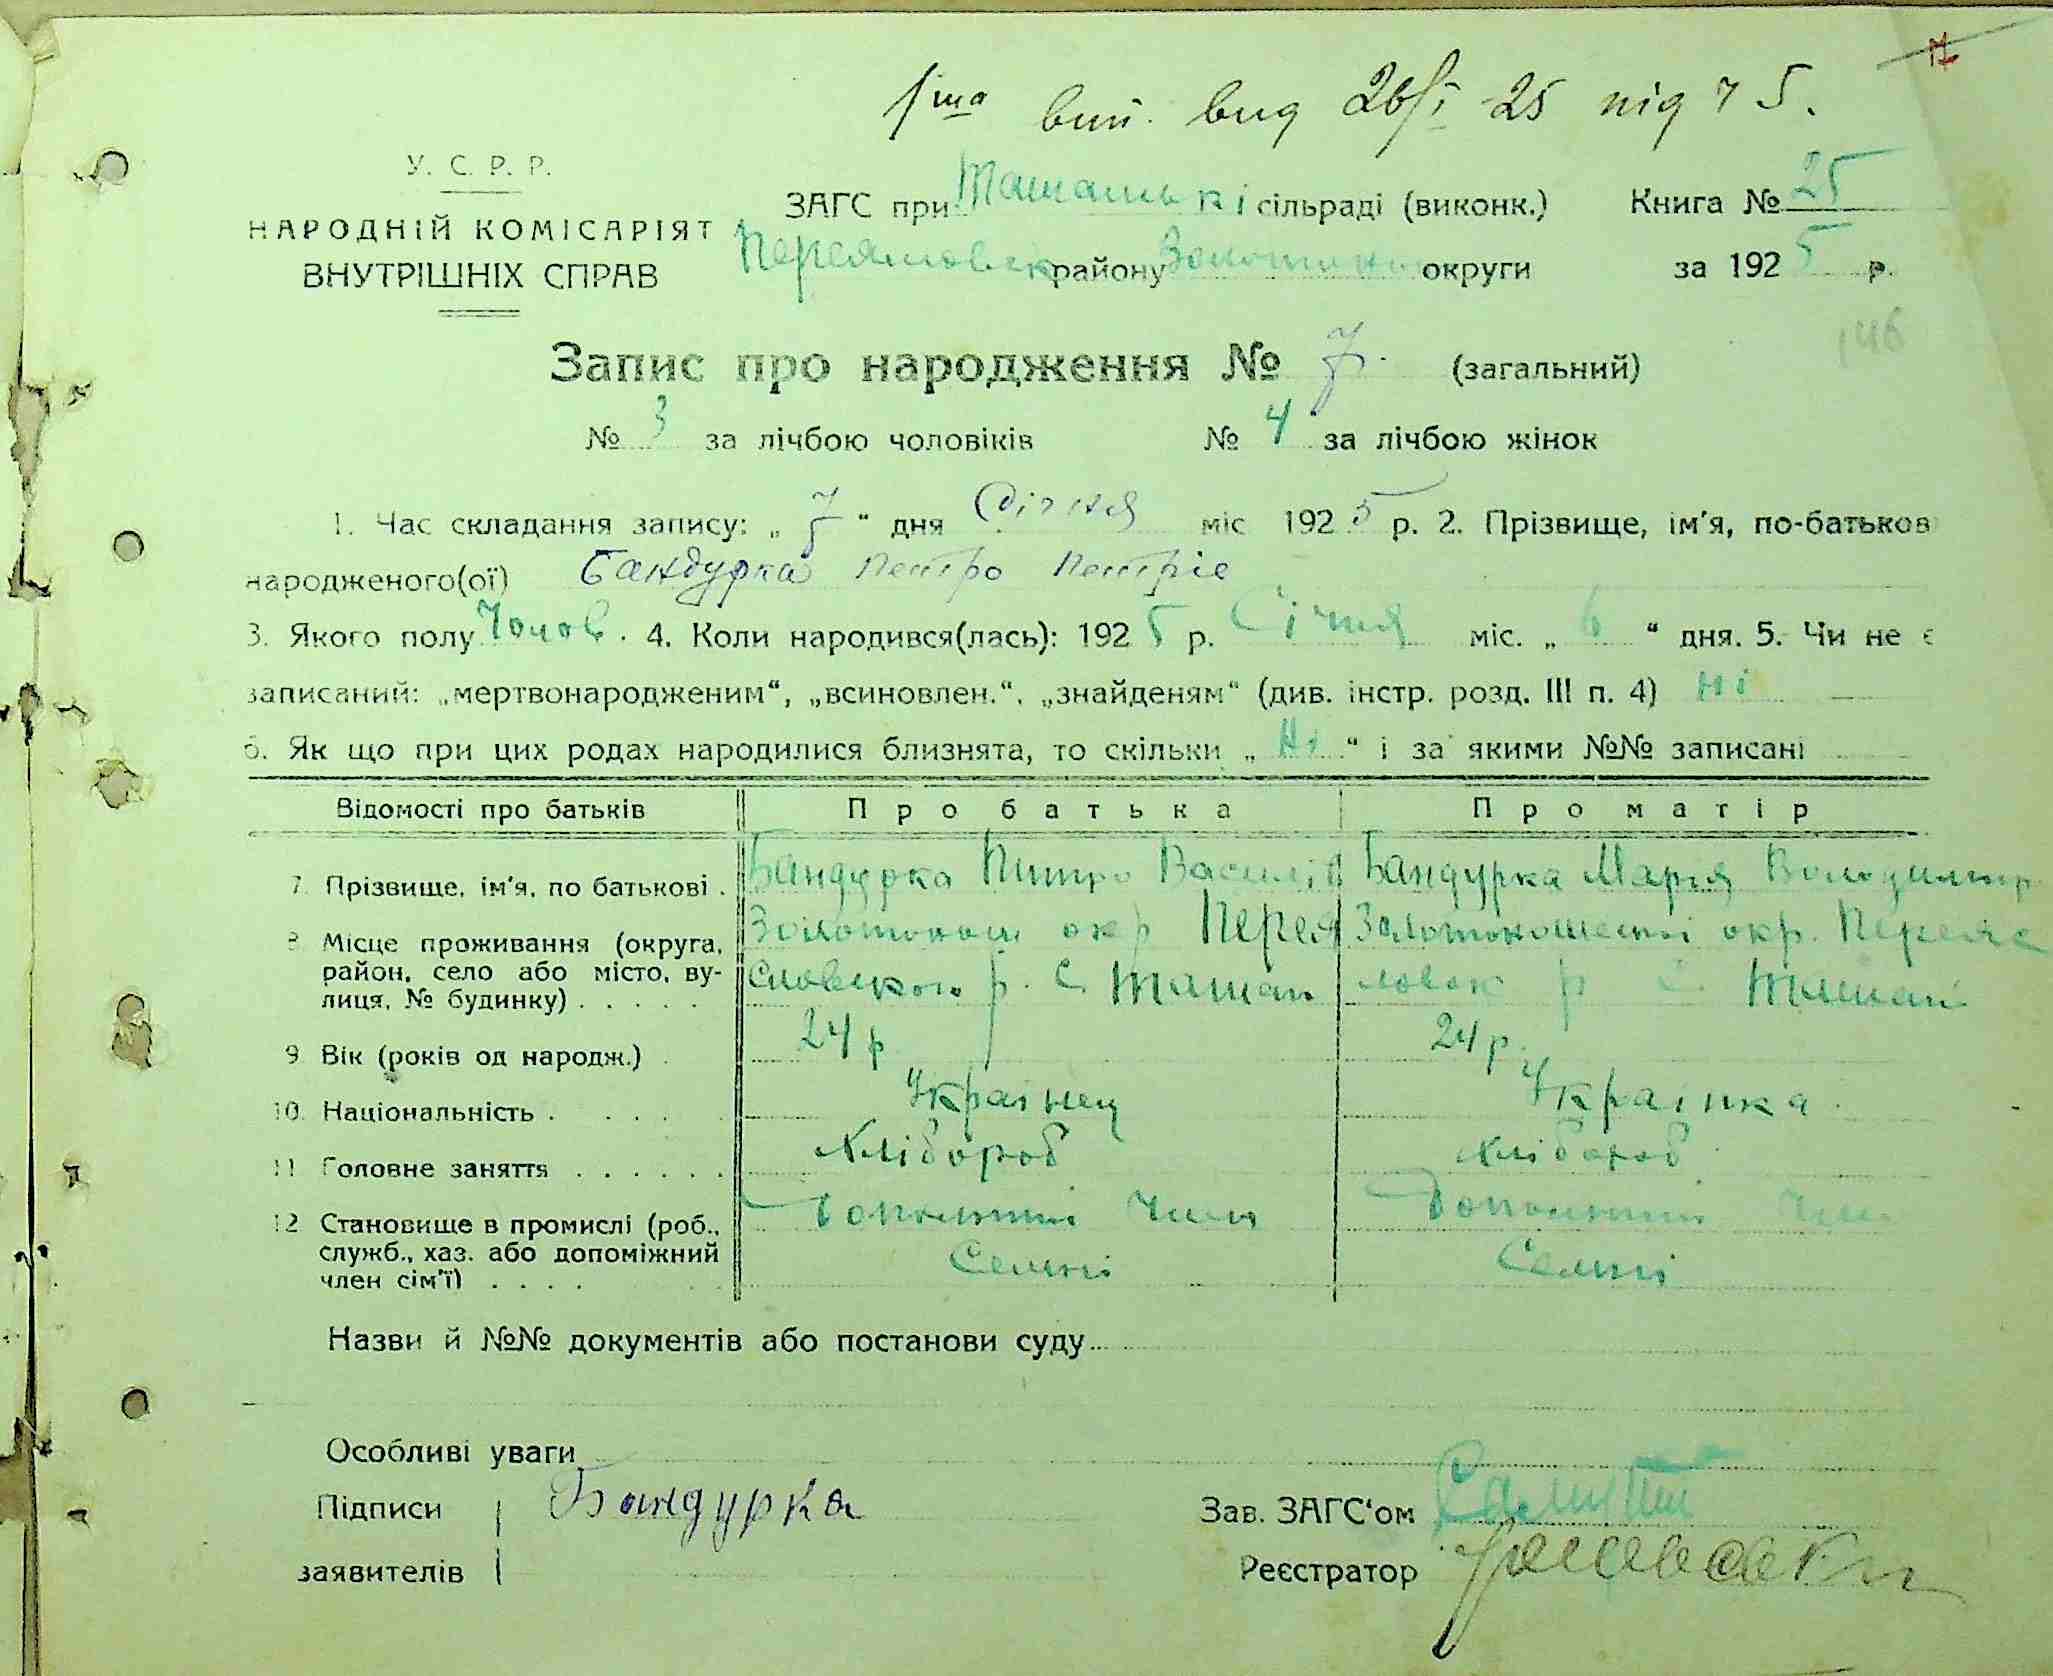 1ша вип. вид 26/I - 25 під ч 5.
У. С. Р. Р.
НАРОДНІЙ КОМІСАРІЯТ
ВНУТРІШНІХ СПРАВ
ЗАГС при Ташанькі сільраді (виконк.) Книга № 25
Переяславск району Золотонош округи за 1925 р.
146
Запис про народження № 7. (загальний)
№ 3 за лічбою чоловіків № 4 за лічбою жінок
1. Час складання запису: „ 7 “ дня Січня міс 1925 р. 2. Прізвище, ім'я, по-батьков
народженого(ої) Бандурка Петро Петріє
3. Якого полу Чолов. 4. Коли народився(лась): 1925 р. Січня міс. „ 6 “ дня. 5. Чи не є
записаний: „мертвонародженим“, „всиновлен.“, „знайденям“ (див. інстр. розд. III п. 4) Ні
6. Як що при цих родах народилися близнята, то скільки „ Ні “ і за якими №№ записані
Відомості про батьків Про батька Про матір
7. Прізвище, ім'я, по батькові . Бандурка Питро Василів Бандурка Марія Володимир
8. Місце проживання (округа, район, село або місто, вулиця, № будинку) . . . . . Золотонош окр Перея Золотоношескої окр. Переяс
словского р. С. Ташань ловск р С. Ташані
9. Вік (років од народж.) . 24 р 24 р.
10. Національність . . . . . Українец Українка
11. Головне заняття . . . . . . Хлібороб Хлібороб
12. Становище в промислі (роб., служб., хаз. або допоміжний член сім'ї) . . . . Допомжний Член Допоможний Член
Семні Семні
Назви й №№ документів або постанови суду
Особливі уваги
Підписи Бандурка Зав. ЗАГС'ом
заявителів Реєстратор